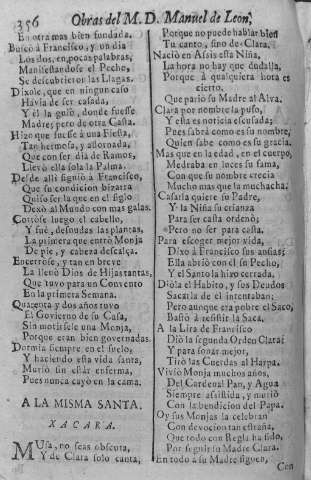 356 Obras del M. D. Manuel de Leon,
En otra mas bien fundada.
Buscó à Francisco, y un dia
Los dos, en pocas palabras,
Manifestandose el Pecho,
Se descubrieron las Llagas.
Dixole, que en ningun caso
Havia de ser casada,
Y èl la guiò, donde fuesse
Madre; pero de otra Casta.
Hizo que fuesse à una Fiesta,
Tan hermosa, y adornada,
Que con ser dia de Ramos,
Llevò ella sola la Palma.
Desde alli siguiò à Francisco,
Que su condicion bizarra
Quiso ser la que en el siglo
Dexò al Mundo con mas galas.
Cortòse luego el cabello,
Y fuè, desnudas las plantas,
La primera que entrò Monja
De pie, y cabeza descalça.
Encerròse, y tan en breve
La llenò Dios de Hijas tantas,
Que tuvo para un Convento
En la primera Semana.
Quarenta y dos años tuvo
El Govierno de su Casa,
Sin motirsele una Monja,
Porque eran bien governadas.
Dormia siempre en el suelo,
Y haciendo esta vida santa,
Muriò sin estàr enferma,
Pues nunca cayò en la cama.
A LA MISMA SANTA.
XACARA.
MUsa, no seas obscura,
Y de Clara solo canta,
Porque no puede hablar bien
Tu canto, sino de Clara.
Naciò en Assis esta Niña,
La hora no hay que dudalla,
Porque à qualquiera hora es
cierto,
Que pariò su Madre al Alva.
Clara por nombre la puso,
Y esta es noticia escusada;
Pues sabrà como es su nombre,
Quien sabe como es su gracia.
Mas que en la edad, en el cuerpo,
Medraba en luces su fama,
Con que su nombre crecia
Mucho mas que la muchacha.
Casarla quiere su Padre,
Y la Niña su crianza
Para ser casta ordenò;
Pero no ser para casta.
Para escoger mejor vida,
Dixo à Francisco sus ansias;
Ella abriò con el su Pecho,
Y el Santo la hizo cerrada.
Diòla el Habito, y sus Deudos
Sacarla de el intentaban;
Pero aunque era pobre el Saco,
Bastò à resistir la Saca.
A la Lira de Francisco
Diò la segunda Orden Clara;
Y para sonar mejor,
Tirò las Cuerdas al Harpa.
Viviò Monja muchos años,
Del Cardenal Pan, y Agua
Siempre assistida, y muriò
Con la bendicion del Papa.
Oy sus Monjas la celebran
Con devocion tan estraña,
Que todo con Regla ha sido,
Por seguir su Madre Clara.
En todo à su Madre siguen,
Con